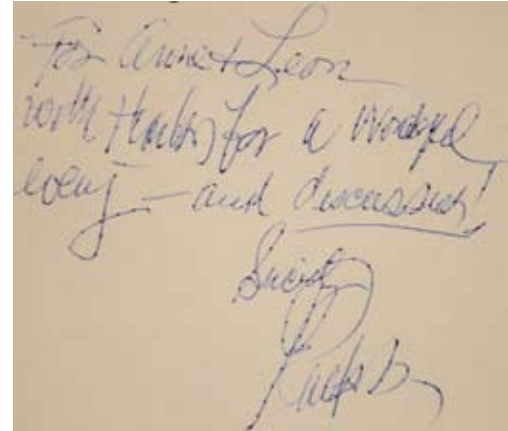 For Anne + Leon
with thanks for a wonderful
evening – and discussion!
Sincerely